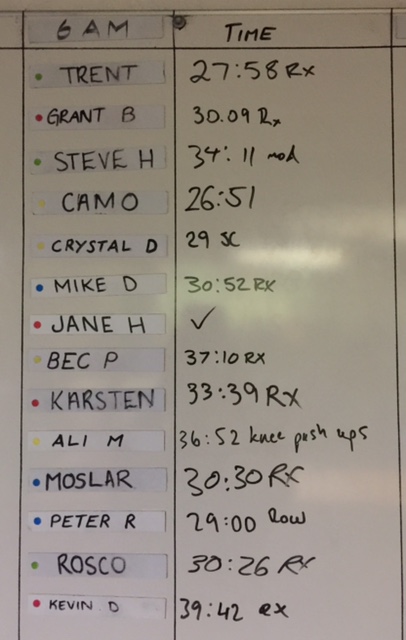 6 AM TIME
TRENT 27:58 Rx
GRANT B 30.09 Rx
STEVE H 34:11 mod
CAMO 26:51
CRYSTAL D 29 SC
MIKE D 30:52 RX
JANE H ✓
BEC P 37:10 RX
KARSTEN 33:39 RX
ALI M 36:52 knee push ups
MOSLAR 30:30 RX
PETER R 29:00 Row
ROSCO 30:26 RX
KEVIN D 39:42 RX